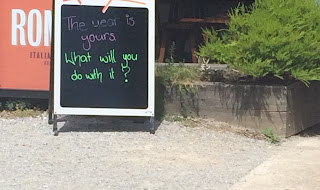 ROM
ITALIA
The year is
yours.
What will you
do with it?